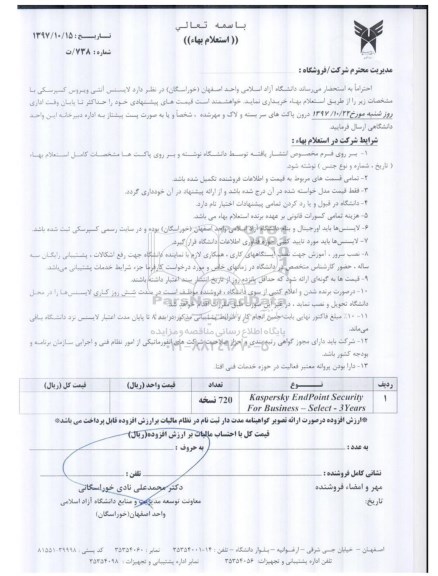 باسمه تعالی
(( استعلام بهاء ))
تــاریــخ : ۱۳۹۷/۱۰/۱۵
شماره : ۷۳۸/ت
مدیریت محترم شرکت/فروشگاه :
احتراماً به استحضار می‌رساند دانشگاه آزاد اسلامی واحد اصفهان (خوراسگان) در نظر دارد لایسنس آنتی ویروس کسپرسکی با
مشخصات زیر را از طریق استعلام بهاء خریداری نماید. خواهشمند است قیمت های پیشنهادی خود را حداکثر تا پایان وقت اداری
روز شنبه مورخ ۱۳۹۷/۱۰/۲۲ درون پاکت های سر بسته و لاک و مهرشده ، شخصاً و یا به صورت پست پیشتاز به اداره دبیرخانه این واحد
دانشگاهی ارسال فرمایید.
شرایط شرکت در استعلام بهاء :
۱- بر روی فرم مخصوص انتشار یافته توسط دانشگاه نوشته و بر روی پاکت ها مشخصات کامل استعلام بهاء
( تاریخ ، شماره و نوع جنس ) نوشته شود.
۲- تمامی قسمت های مربوط به قیمت و اطلاعات فروشنده تکمیل شده باشد.
۳- فقط قیمت مدل خواسته شده در آن درج شده باشد و از ارائه پیشنهاد در آن خودداری گردد.
۴- دانشگاه در قبول و یا رد کردن تمامی پیشنهادات اختیار تام دارد.
۵- هزینه تمامی کسورات قانونی بر عهده برنده استعلام بهاء می باشد.
۶- لایسنس‌ها باید اورجینال و بنام دانشگاه آزاد اسلامی واحد اصفهان (خوراسگان) بوده و در سایت رسمی کسپرسکی ثبت شده باشد.
۷- لایسنس‌ها باید مورد تایید فناوری اطلاعات دانشگاه قرار گیرد.
۸- نصب سرور ، آموزش جهت نصب ایستگاههای کاری ، همکاری لازم با نماینده دانشگاه جهت رفع اشکالات ، پشتیبانی رایگان سه
ساله ، حضور کارشناس متخصص در دانشگاه در زمانهای خاص و مورد درخواست کارفرما جزء شرایط خدمات پشتیبانی می‌باشد.
۹- قیمت ها به گونه‌ای ارائه شود که حداقل پانزده روز از تاریخ انتشار بسته اعتبار داشته باشند.
۱۰- درصورت برنده شدن و اعلام کتبی از سوی دانشگاه ، فروشنده موظف است در مدت شش روز کاری لایسنس‌ها را در محل
دانشگاه تحویل و نصب نماید
۱۱- ۱۰٪ مبلغ فاکتور نهایی بابت حسن انجام کار و شرایط پشتیبانی تا پایان مدت اعتبار لایسنس نزد دانشگاه باقی
می‌ماند.
۱۲- شرکت باید دارای مجوز گواهی رتبه‌بندی و احراز صلاحیت شرکت های انفورماتیکی از امور نظام فنی و اجرایی سازمان برنامه و
بودجه کشور باشد.
۱۳- دارا بودن پروانه معتبر فعالیت در حوزه خدمات فنی افتا.
پایگاه اطلاع رسانی مناقصه و مزایده
ردیف نــوع تعداد قیمت واحد (ریال) قیمت کل (ریال)
۱ Kaspersky EndPoint Security 720 نسخه
For Business – Select - 3Years
※ارزش افزوده درصورت ارائه تصویر گواهینامه مدت دار ثبت نام در نظام مالیات بر ارزش افزوده قابل پرداخت می باشد※
قیمت کل با احتساب مالیات بر ارزش افزوده(ریال)
به عدد : به حروف :
نشانی کامل فروشنده : تلفن :
مهر و امضاء فروشنده
تاریخ:
دکتر محمدعلی نادی خوراسگانی
معاونت توسعه مدیریت و منابع دانشگاه آزاد اسلامی
واحد اصفهان(خوراسگان)
اصفهان - خیابان جی شرقی - ارغوانیه - بلوار دانشگاه - تلفن : ۱۴-۳۵۳۵۴۰۰۱ نمابر : ۳۵۳۵۴۰۶۰ کد پستی : ۳۹۹۹۸-۸۱۵۵۱
تلفن اداره پشتیبانی و تجهیزات : ۳۵۳۵۴۰۵۶ نمابر اداره پشتیبانی و تجهیزات : ۳۵۳۵۴۰۹۸